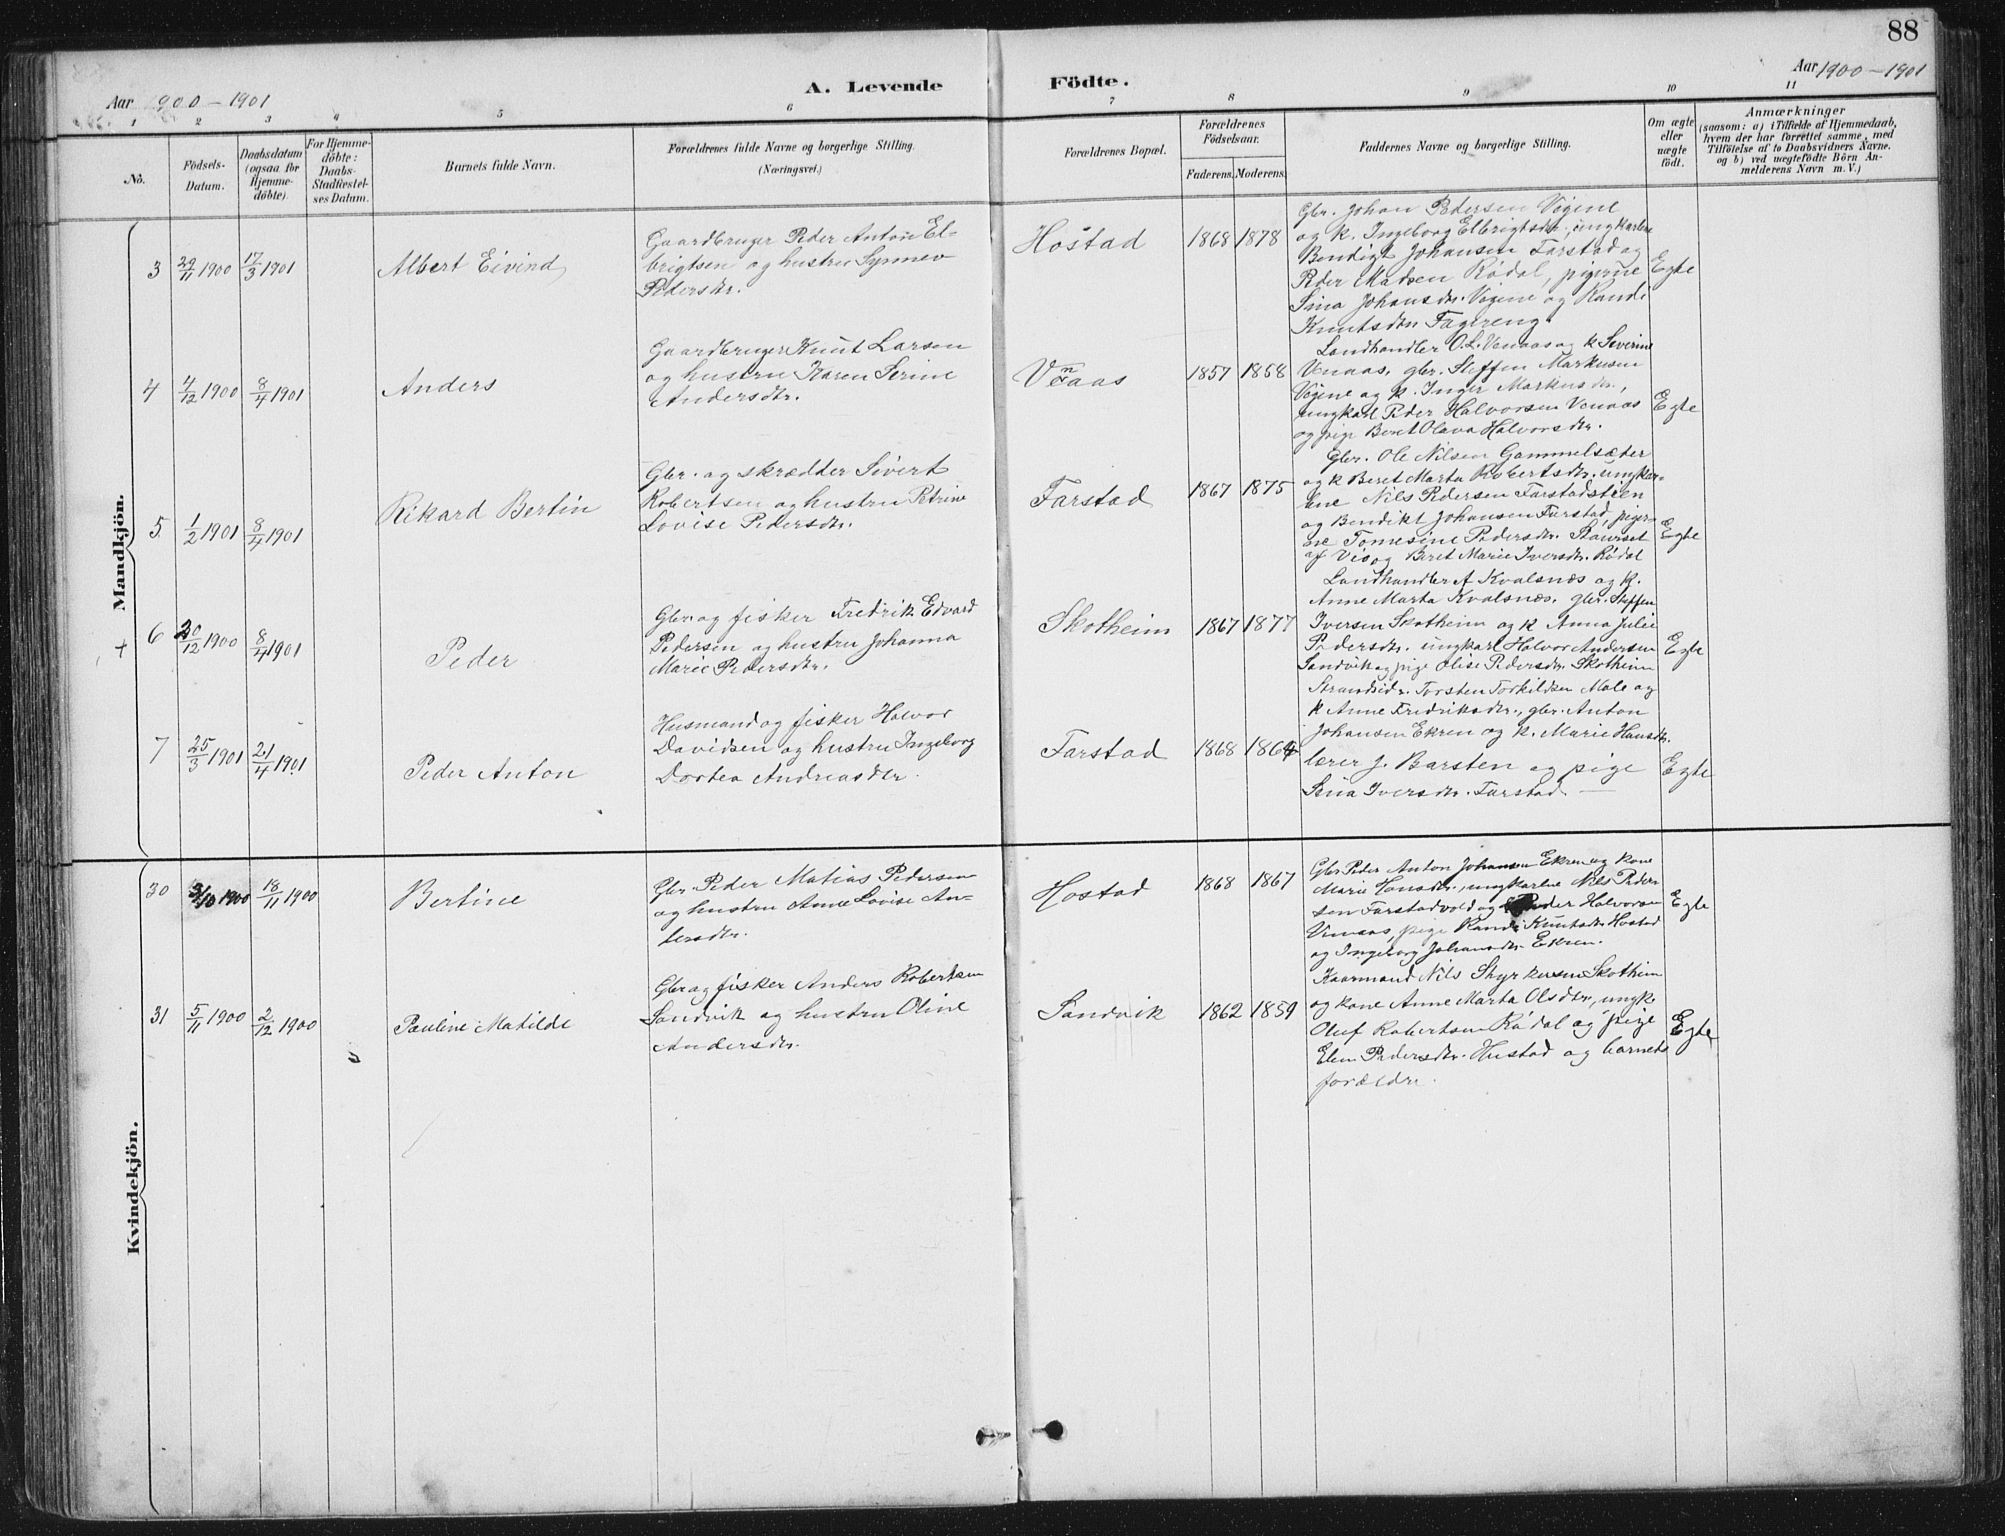 88
Aar 1900-1901
Aar 900-1901
A. Levende
Födte.
1 2 3 4 5 6 7 8 9 10 11
No.
Födsels-
Datum.
Daabsdatum
(ogsaa for
Hjemme-
döbte).
For Hjemme-
döbte:
Daabs-
Stadfæstel-
ses Datum.
Barnets fulde Navn.
Forældrenes fulde Navne og borgerlige Stilling.
(Næringsvei.)
Forældrenes Bopæl.
Forældrenes
Födselsaar.
Faderens. Moderens.
Faddernes Navne og borgerlige Stilling.
Om ægte
eller
uægte
født.
Anmærkninger
(saasom: a) i Tilfælde af Hjemmedaab,
hvem der har forrettet samme, med
Tilföielse af to Daabsvidners Navne.
og b) ved uægtefödte Börn An-
melderens Navn m. V.)
Mandkjön.
3 29/11 1900 17/3 1901
Albert Eivind
Gaardbruger Peder Anton El-
brigtsen og hustru Synnev
Pedersdtr.
Hostad
1868 1878
Gbr. Johan Pedersen Vågene
og k. Ingeborg Elbrigtsdtr., ungkarlene
Bendigt Johansen Farstad og
Peder Madsen Rødal, pigerne
Sina Johansdtr. Vågene og Randi
Knutsdtr Fagereng.
Egte
4 4/12 1900 8/4 1901
Anders
Gaardbruger Knut Larsen
og hustru Karen Serine
Andersdtr.
Venaas
1857 1868
Landhandler O. L. Venaas og k Severine
Venaas, gbr. Steffen Markusen
Vågene og k. Inger Markusdtr.,
ungkarl Peder Halvorsen Venaas
og pige Beret Olava Halvorsdtr.
Egte
5 1/2 1901 8/4 1901
Rikard Bertin
Gbr. og skrædder Sivert
Robertsen og hustru Petrine
Lovise Pedersdtr.
Farstad
1867 1875
Gbr. Ole Nilsen Gammelsæter
og k Beret Marta Robertsdtr. ungkar-
lene Nils Pedersen Farstadsteen
og Bendikt Johansen Farstad, piger-
ne Tomesine Pedersdtr. Staurset
af Vis og Beret Marie Iversdtr. Rødal
Ægte
+ 6 20/12 1900 8/4 1901
Peder
Gbr. og fisker Fredrik Edvard
Pedersen og hustru Johanna
Marie Pedersdtr.
Skotheim
1867 1877
Landhandler A Kvalsnæs og k.
Anne Marta Kvalsnæs. gbr. Steffen
Iversen Skotheim og k Anna Julie
Pedersdtr. ungkarl Halvor Andersen
Sandvik og pige Olise Pedersdtr. Skotheim
Egte
7 25/3 1901 21/4 1901
Peder Anton
Husmand og fisker Halvor
Davidsen og hustru Ingeborg
Dortea Andreasdtr.
Farstad
1868 1864
Strandsidr. Torsten Torkildsen Male og
k Anne Fredriksdtr., gbr. Anton
Johansen Ekren og k. Marie Hansdtr.
lærer J. Barsten og pige
Sina Iversdtr. Farstad.
Egte
Kvindekjön.
30 3/10 1900 18/11 1900
Bertine
Gbr. Peder Matias Pedersen
og hustru Anne Lovise An-
tersdtr.
Hostad
1868 1867
Gbr Peder Anton Johansen Ekren og kone
Marie Hansdtr., ungkarlene Nils Peder-
sen Farstadvold og Peder Halvorsen
Venaas, pige Randi Knutsdtr. Hostad
og Ingeborg Johansdtr. Ekren.
Egte
31 5/11 1900 2/12 1900
Pauline Matilde
Gbr og fisker Anders Robertsen
Sandvik og hustru Oline
Andersdtr.
Sandvik
1862 1859
Kaarmand Nils Styrkersen Skotheim
og kone Anne Marta Olsdtr., ungk.
Oluf Robertsen Rødal og pige
Elen Pedersdtr. Hustad og barnets
forældre.
Egte